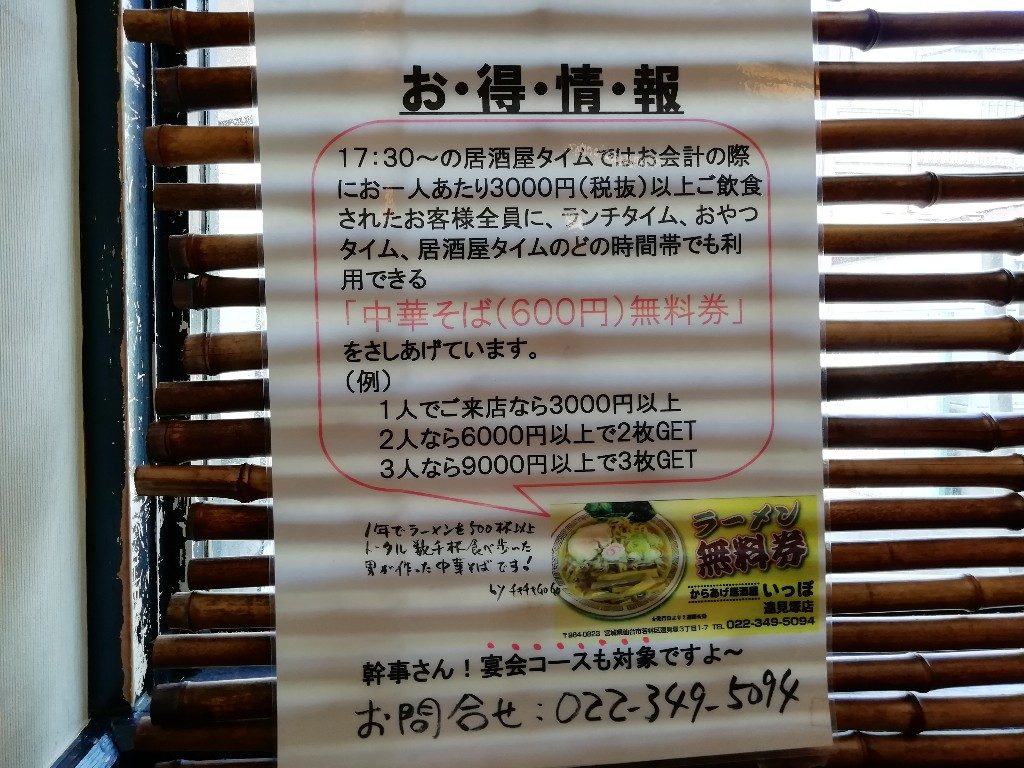 お・得・情・報
17:30～の居酒屋タイムではお会計の際
にお一人あたり3000円(税抜)以上ご飲食
されたお客様全員に、ランチタイム、おやつ
タイム、居酒屋タイムのどの時間帯でも利
用できる
「中華そば(600円)無料券」
をさしあげています。
(例)
1人でご来店なら3000円以上
2人なら6000円以上で2枚GET
3人なら9000円以上で3枚GET
1年でラーメンを500杯以上
トータル数千杯食べ歩いた
男が作った中華そばです!
by チキチキGoGo
ラーメン
無料券
からあげ居酒屋 いっぽ
遠見塚店
〒984-0823 宮城県仙台市若林区遠見塚3丁目1-7 TEL 022-349-5094
幹事さん!宴会コースも対象ですよ～
お問合せ:022-349-5094